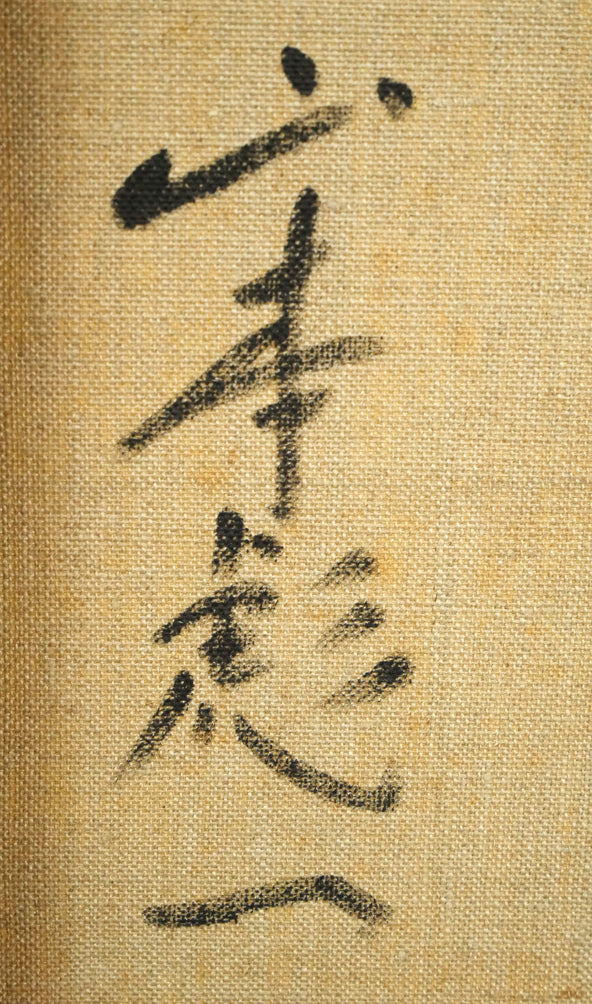 山本彪一